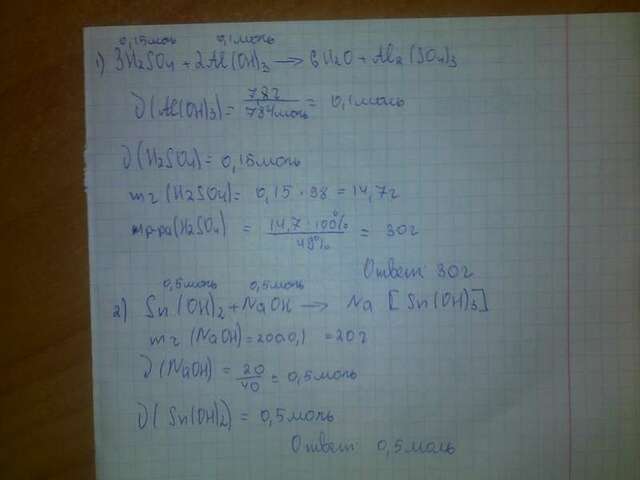 0,15моль 0,1моль
1) 3H₂SO₄ + 2Al(OH)₃ → 6H₂O + Al₂(SO₄)₃
ν(Al(OH)₃) = 7,8г / 78г/моль = 0,1моль
ν(H₂SO₄) = 0,15моль
mг(H₂SO₄) = 0,15 · 98 = 14,7г
mр-ра(H₂SO₄) = 14,7 · 100% / 49% = 30г
Ответ 30г
0,5моль 0,5моль
2) Sn(OH)₂ + NaOH → Na[Sn(OH)₃]
mг(NaOH) = 200·0,1 = 20г
ν(NaOH) = 20/40 = 0,5моль
ν(Sn(OH)₂) = 0,5моль
Ответ 0,5моль